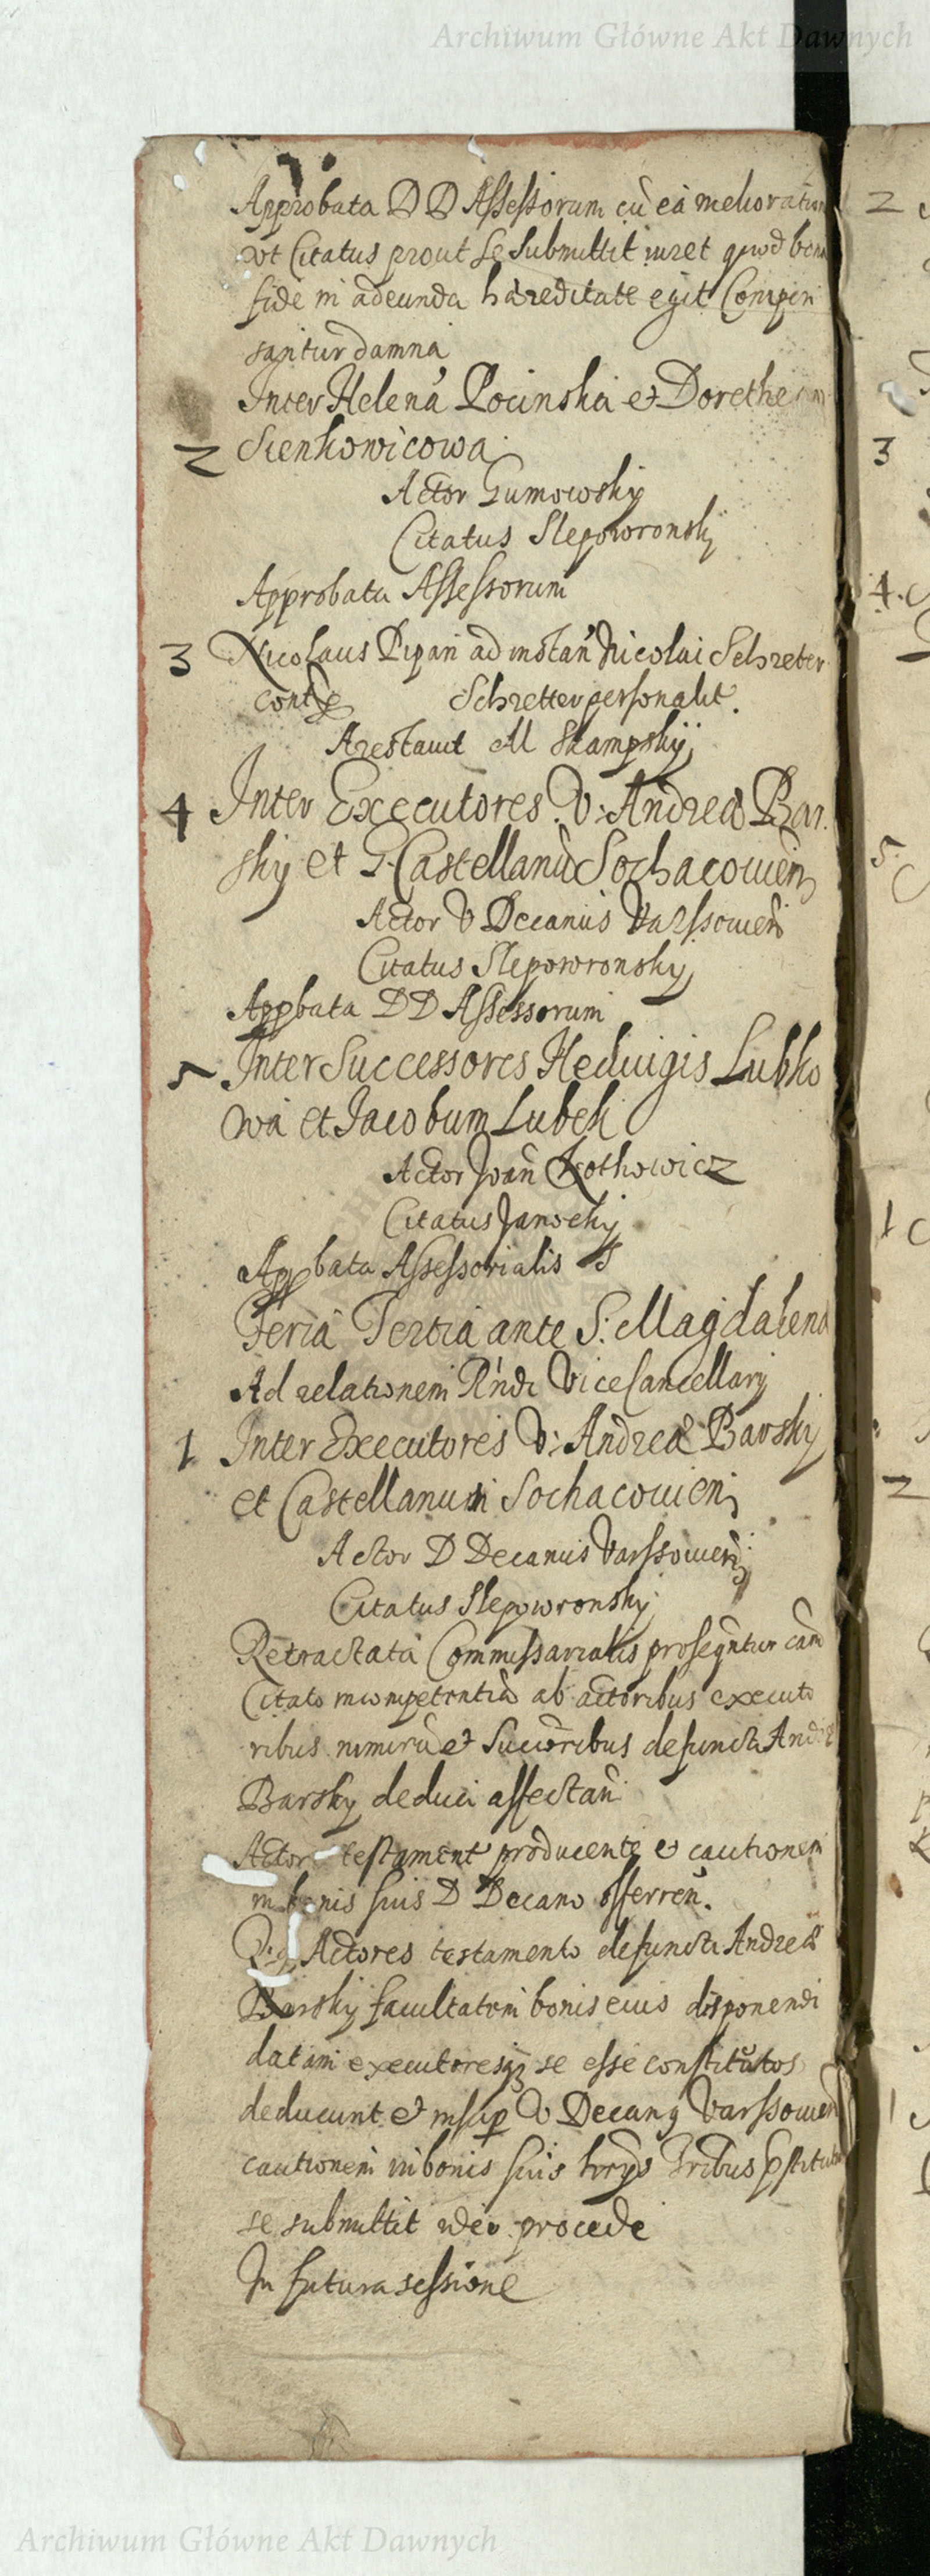 Archiwum Główne Akt Dawnych
Approbata D D Assessorum cũ eá melioration
ut Citatus prout se submittit iuret quod bona
fide in adeunda hæreditate egit Compen
santur damna
Inter Helená Pocinska et Dorothe
2 Sienkowicowa
Actor Gumowsky
Citatus Slepowronsky
Approbata Assessorum
3 Nicolaus Pipan ad instañ Nicolai Schreter
contẽ Schretter personalit.
Arestavit M Skampsky
4 Inter Executores V: Andreæ Bar
sky et G Castellanũ Sochacovien
Actor V Decanus Varssovien
Citatus Slepowronsky
Appbata DD Assessorum
5 Inter Successores Heduigis Lubko
wá et Jacobum Lubek
Actor Joañ Kothowicz
Citatus Janocky
Appbata Assessorialis
Feria Tertia ante S: Magdalena
Ad relationem R'ndi ViceCancellarij
1 Inter Executores V: Andreæ Barsky
et Castellanum Sochacovien
Actor D Decanus Varssovien
Citatus Slepowronsky
Retractata Commissarialis prosequtur cam
Citato incompetentia ab actoribus executo
ribus nimirũ et Succoribus defuncti And
Barsky deduci affectañ
Actor testament producente et cautionem
in bonis suis D Decano offerreñ.
Actores testamento defuncti Andreæ
Barsky facultatem bonis eius disponendi
datam executoresq se esse constitutos
deducunt et insup V Decanq Varssovien
cautionem in bonis suis tribus
se submittit ideo procede
In futura sessione
2
3
4.
5
1
2
1
Archiwum Główne Akt Dawnych